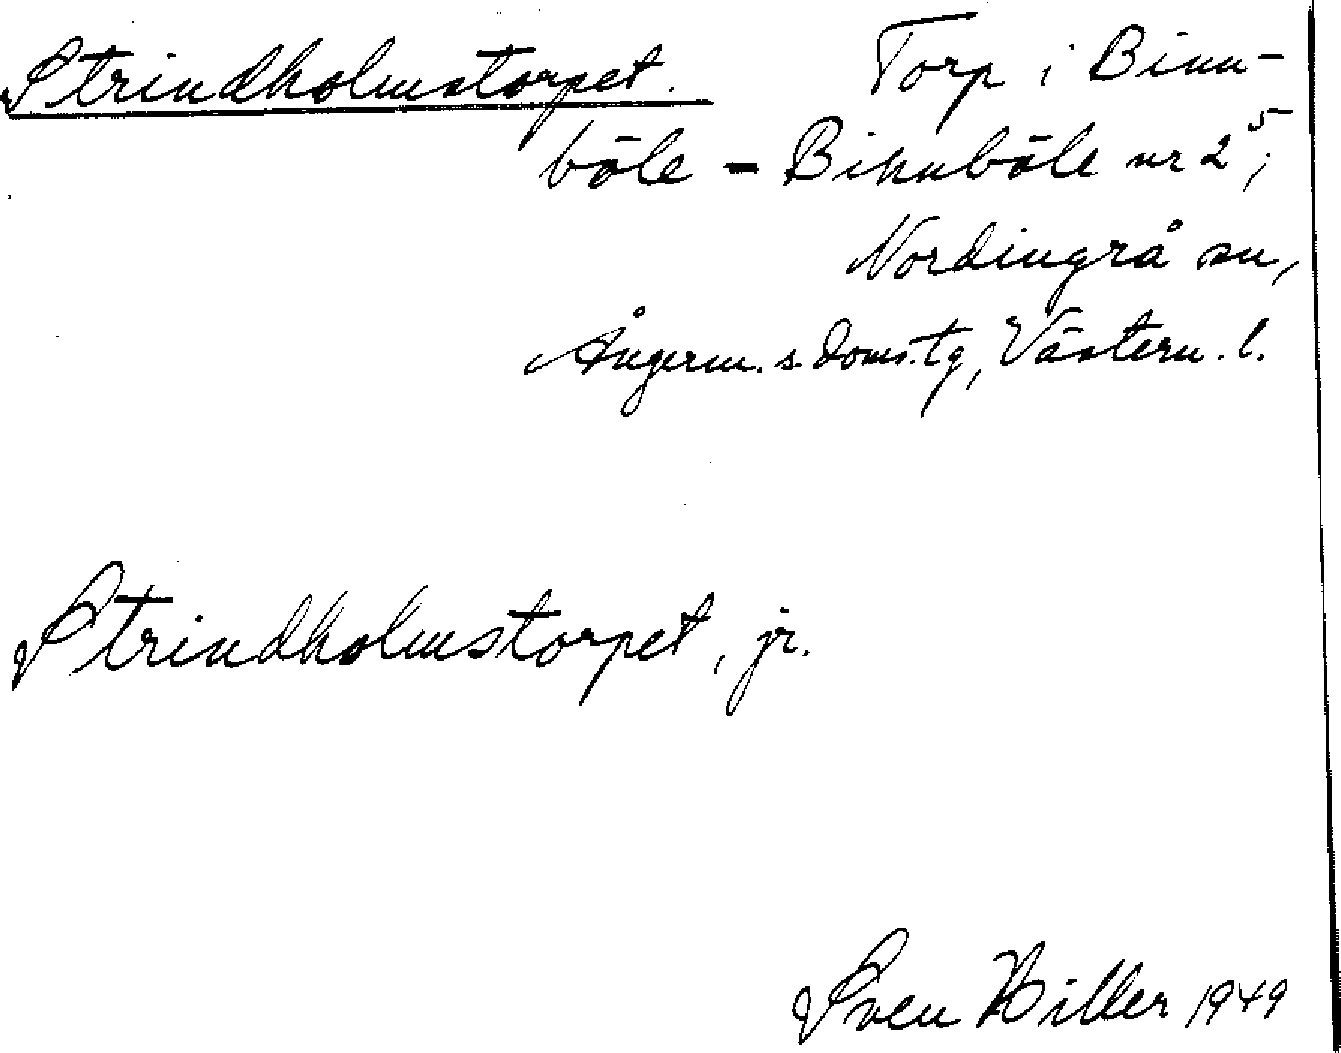 Strindholmstorpet. Torp i Binn-
böle - Binnböle nr 2⁵,
Nordingrå sn,
Ångerm. s. doms.tg, Västern. l.
Strindholmstorpet, jr.
Sven Hiller 1949